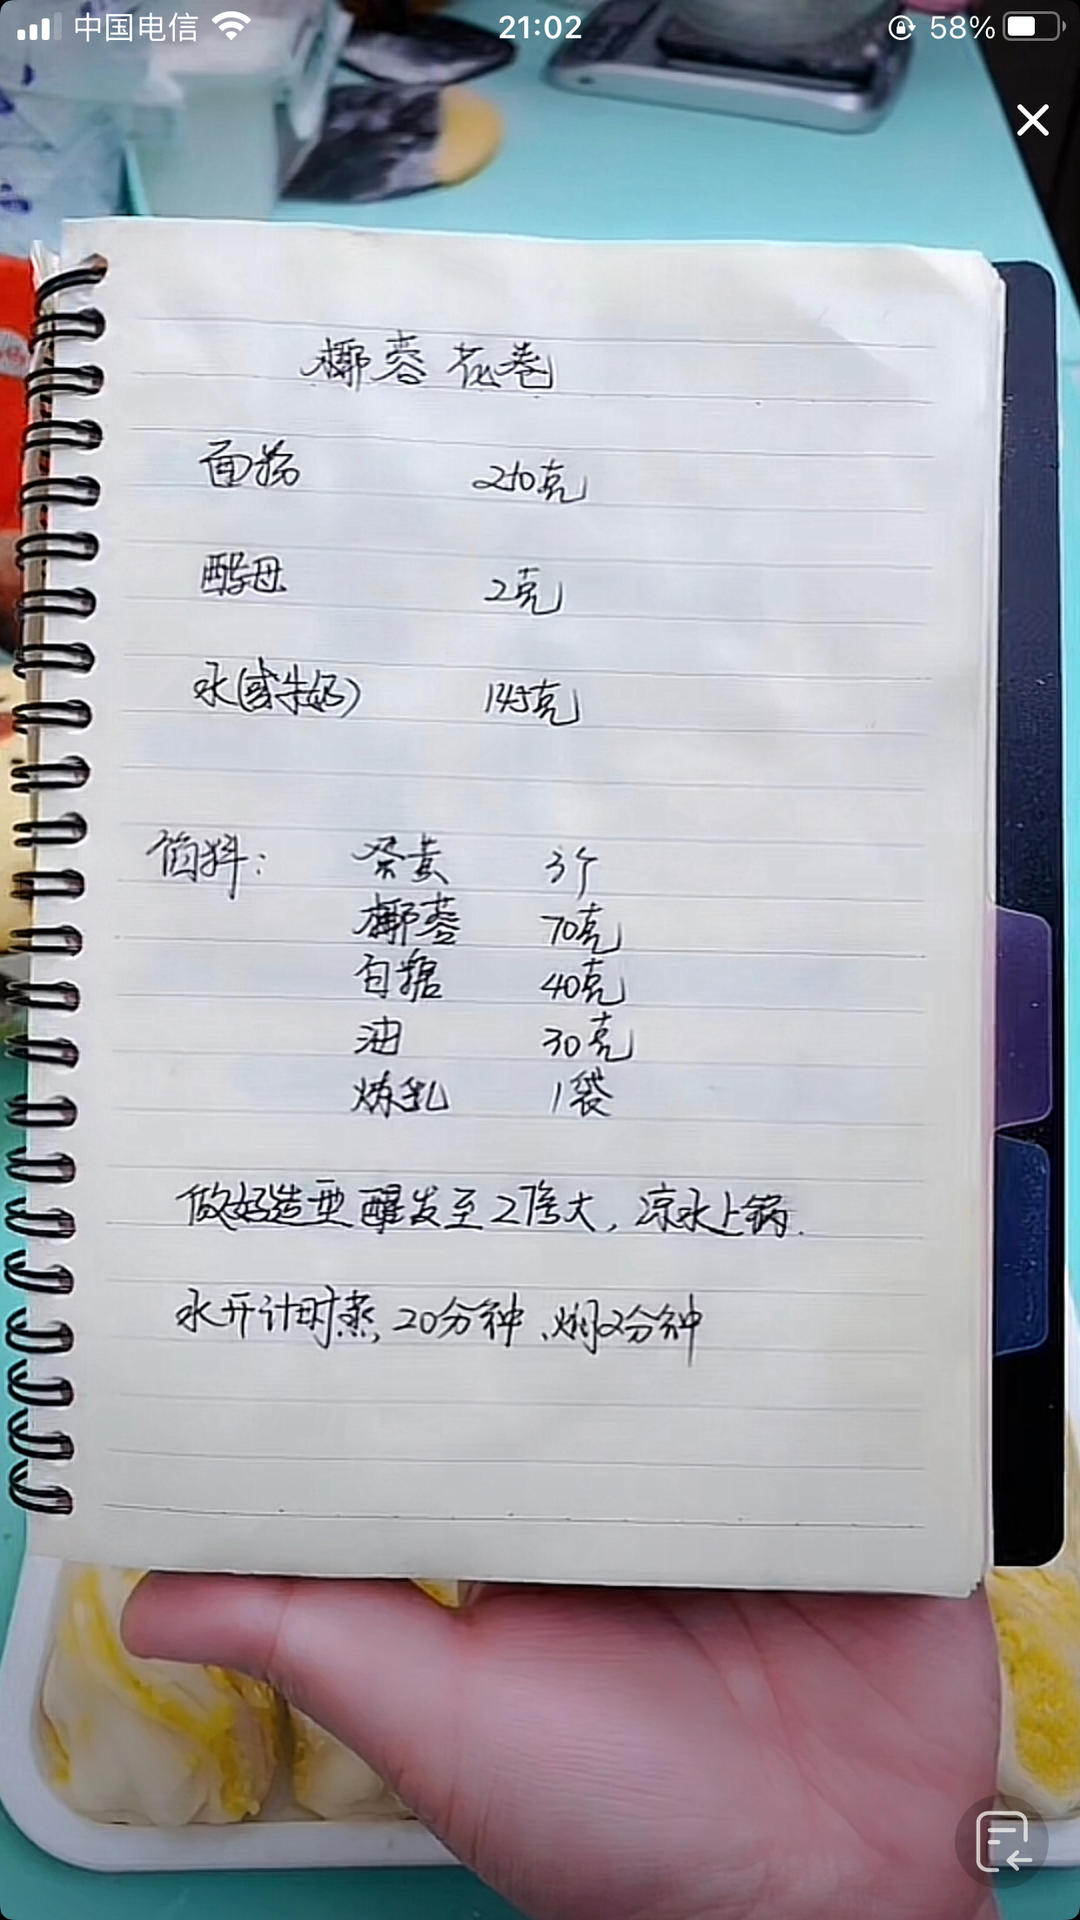 中国电信 21:02 58%
椰蓉花卷
面粉 250克
酵母 2克
水(或牛奶) 145克
馅料: 蛋黄 3个
椰蓉 70克
白糖 40克
油 30克
炼乳 1袋
做好造型醒发至2倍大,凉水上锅.
水开计时蒸,20分钟、焖2分钟